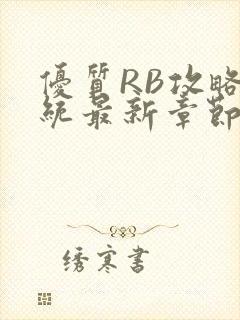 優質RB攻略
統最新章節
绣寒書